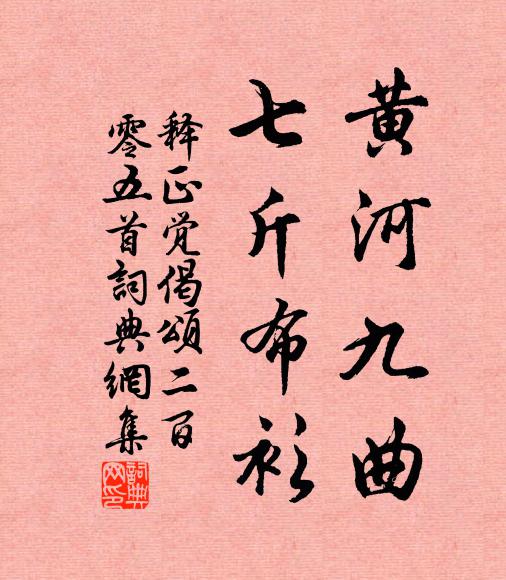 黄河九曲
七斤布衫
释正觉偈颂二百
零五首詞典網集
詞典网印